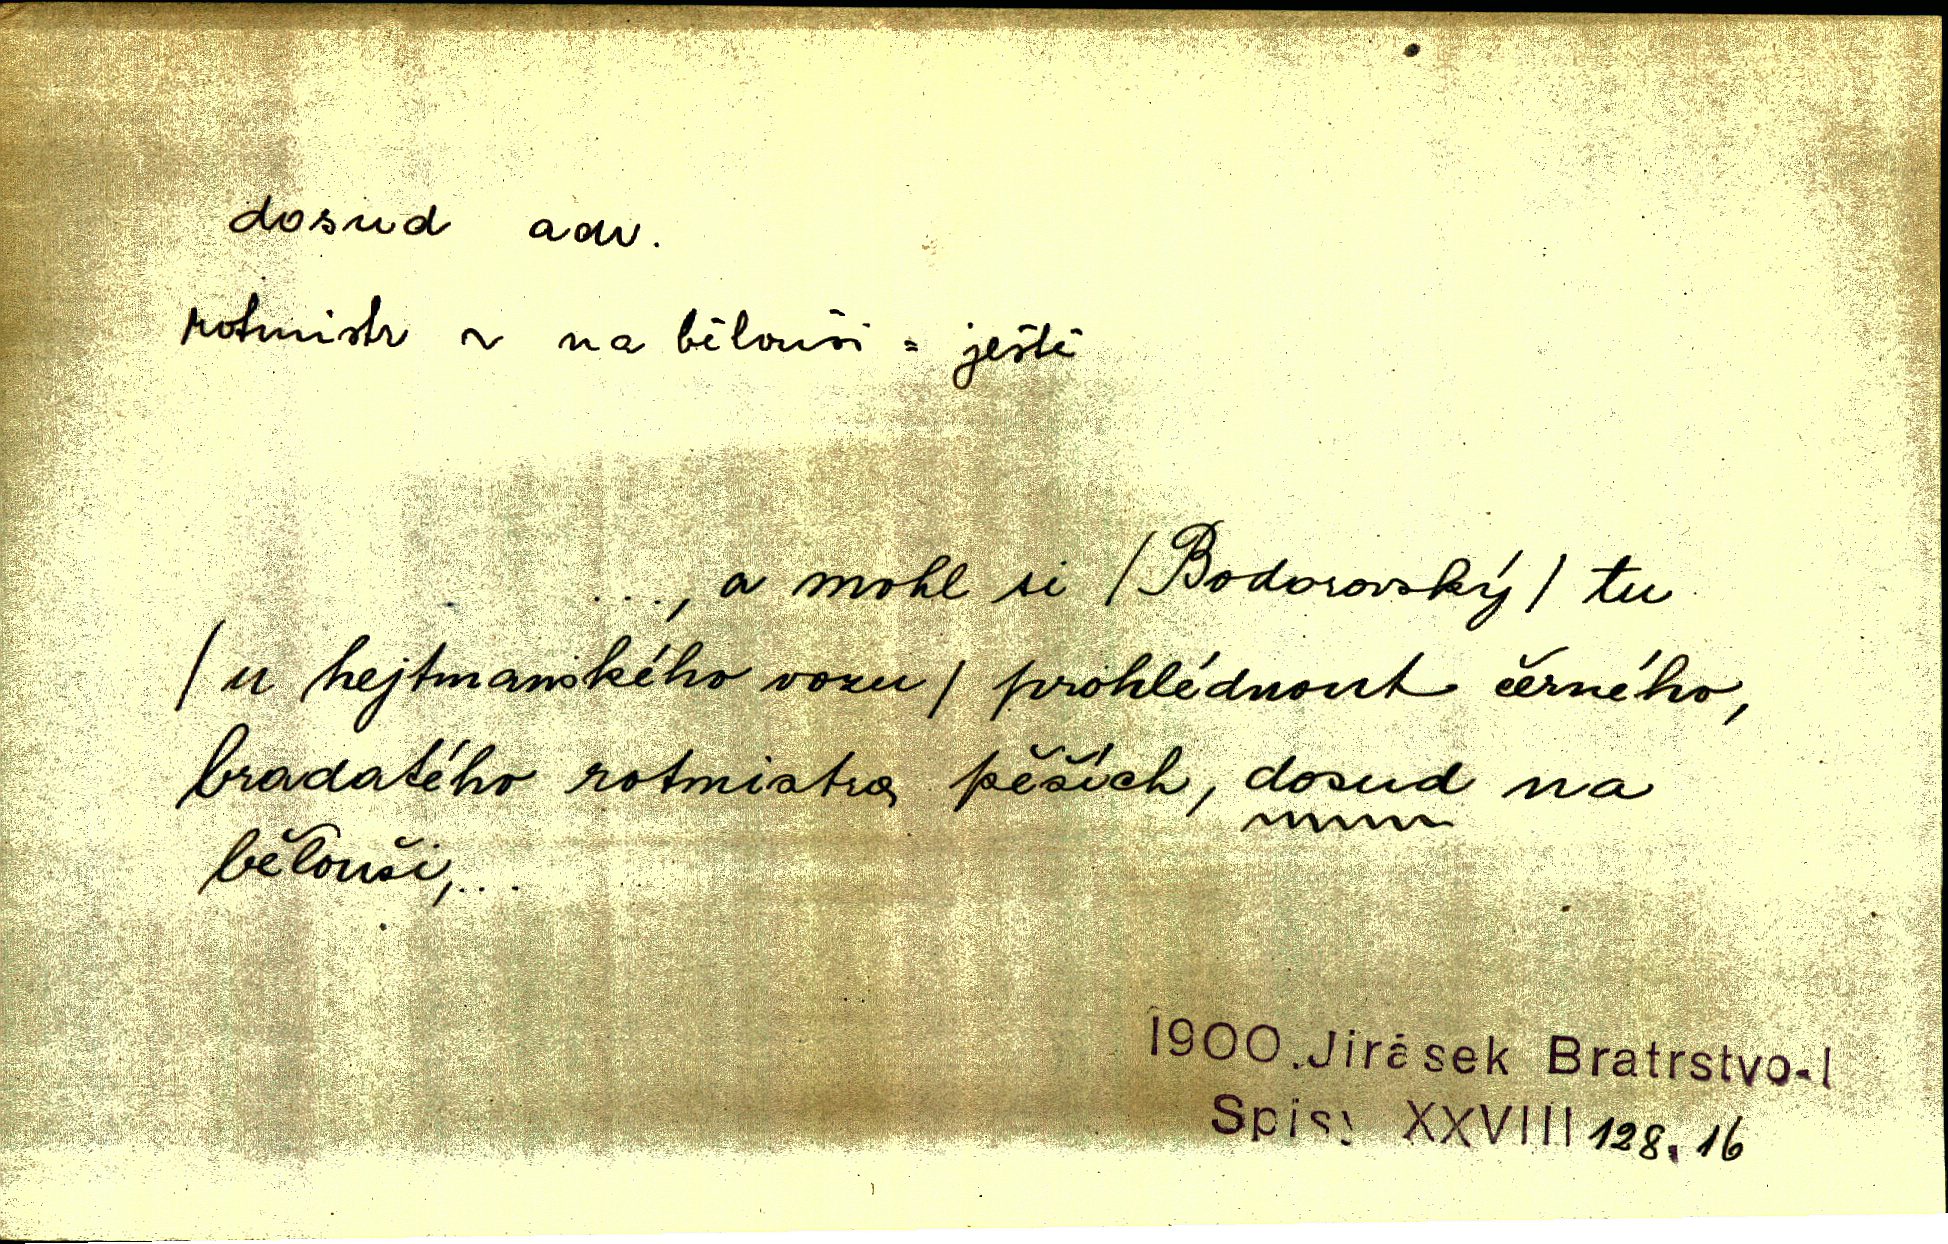 dosud adv.
rotmistr ~ na bělouši = ještě
..., a mohl si /Bodorovský/ tu
/u hejtmanského vozu/ prohlédnout černého,
bradatého rotmistra pěších, dosud na
bělouši,...
1900.Jirásek Bratrstvo-I
Spisy XXVIII 128,16